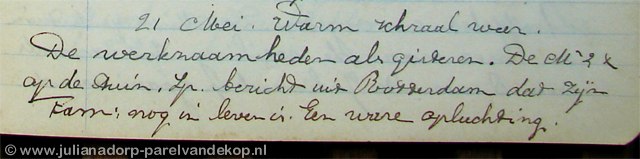 21 Mei. Warm schraal weer.
De werkzaamheden als gisteren. De
op de duin. Sp. bericht uit Rotterdam dat zijn
Fam: nog in leven is. Een ware opluchting.
© www.julianadorp-parelvandekop.nl